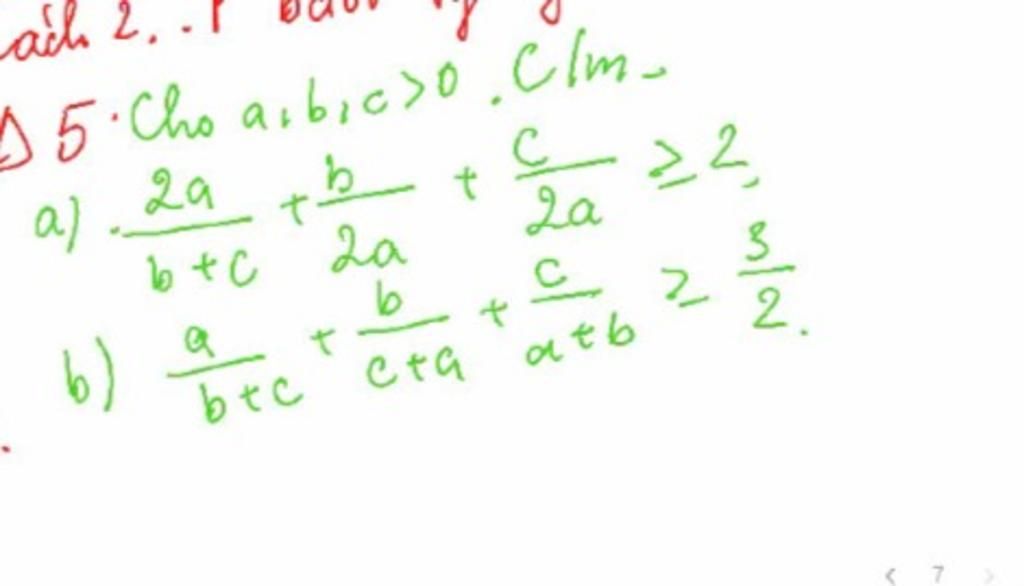 2..
5. Cho a, b, c > 0. C/m
a) 2a/(b+c) + b/2a + c/2a ≥ 2,
b) a/(b+c) + b/(c+a) + c/(a+b) ≥ 3/2.
< 7 >